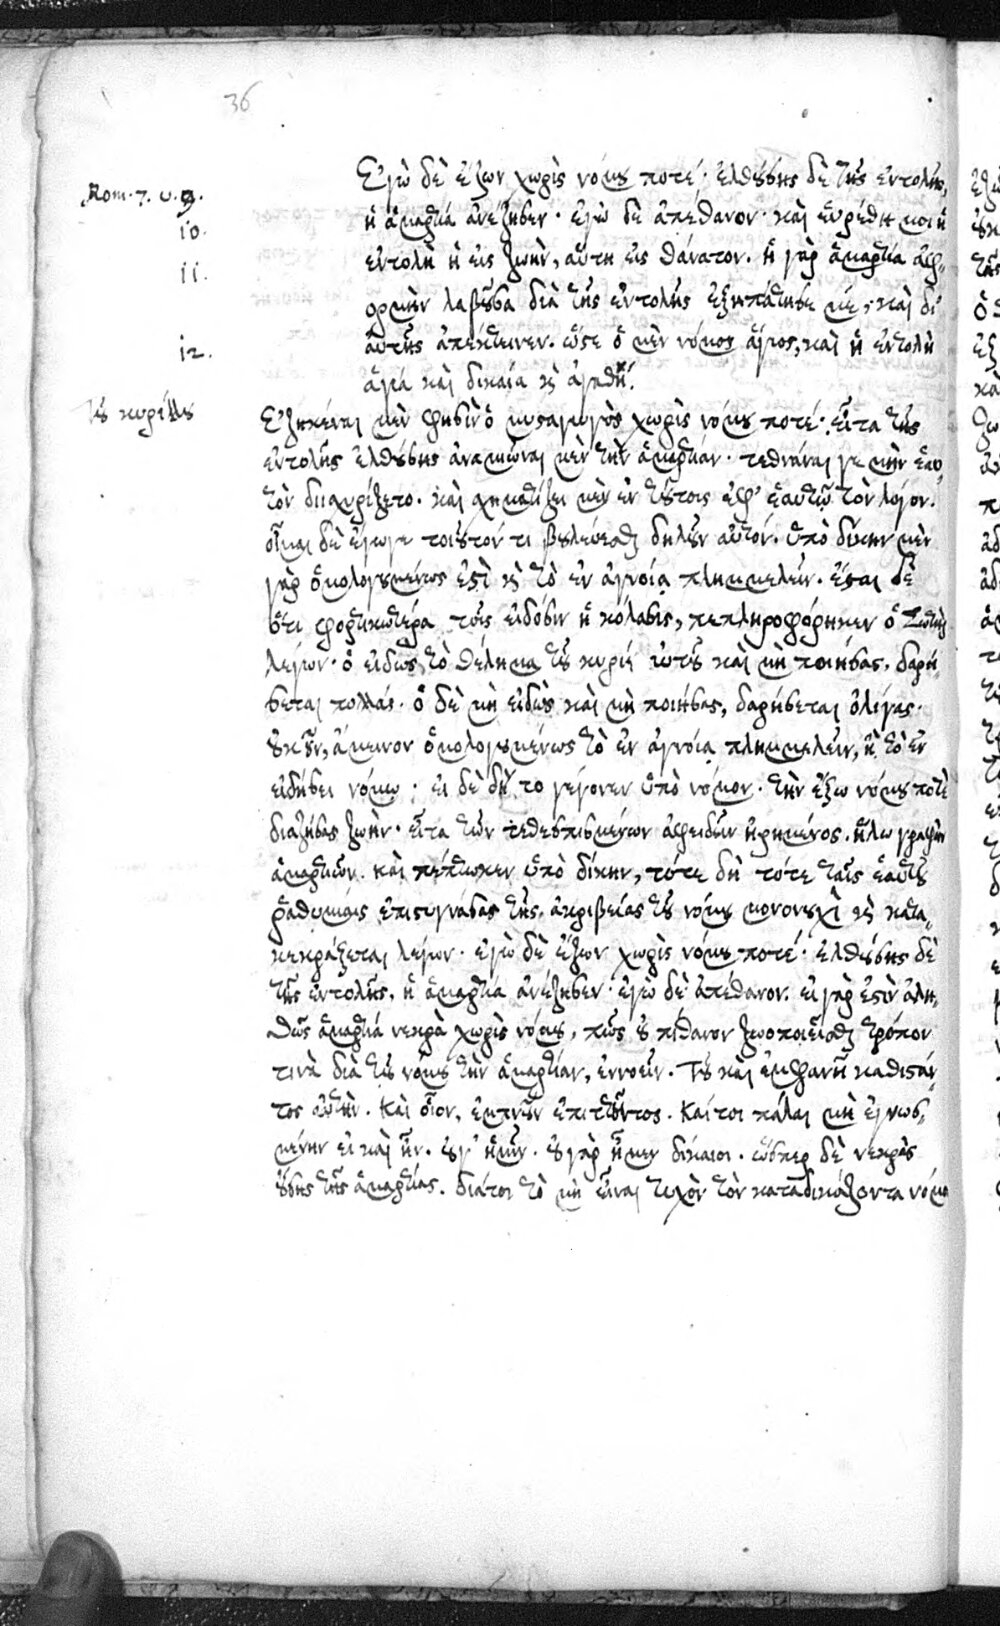 36
Rom. 7. v. 9.
10.
11.
12.
Ἐγὼ δὲ ἔζων χωρὶς νόμου ποτέ· ἐλθούσης δὲ τῆς ἐντολῆς,
ἡ ἁμαρτία ἀνέζησεν· ἐγὼ δὲ ἀπέθανον· καὶ εὑρέθη μοι ἡ
ἐντολὴ ἡ εἰς ζωὴν, αὕτη εἰς θάνατον. ἡ γὰρ ἁμαρτία ἀφ-
ορμὴν λαβοῦσα διὰ τῆς ἐντολῆς ἐξηπάτησέ με, καὶ δι'
αὐτῆς ἀπέκτεινεν. ὥστε ὁ μὲν νόμος ἅγιος, καὶ ἡ ἐντολὴ
ἁγία καὶ δικαία καὶ ἀγαθή.
τοῦ κυρίλλου
Ἐζηκέναι μὲν φησὶν ὁ μυσταγωγὸς χωρὶς νόμου ποτέ· εἶτα τῆς
ἐντολῆς ἐλθούσης ἀναβιῶναι μὲν τὴν ἁμαρτίαν· τεθνάναι γε μὴν ἑαυ-
τὸν διϊσχυρίζετο. καὶ σχηματίζει μὲν ἐν τούτοις ἐφ' ἑαυτῷ τὸν λόγον.
οἶμαι δὲ ἔγωγε τοιοῦτόν τι βούλεσθαι δηλοῦν αὐτόν. ὑπὸ δίκην μὲν
γὰρ ὁμολογουμένως ἐστὶ καὶ τὸ ἐν ἀγνοίᾳ πλημμελεῖν. ἔσται δὲ
ὅτι φορτικωτέρα τοῖς εἰδόσιν ἡ κόλασις, πεπληροφόρηκεν ὁ Σωτὴρ
λέγων· ὁ εἰδὼς τὸ θέλημα τοῦ κυρίου αὐτοῦ καὶ μὴ ποιήσας, δαρή-
σεται πολλάς. ὁ δὲ μὴ εἰδὼς καὶ μὴ ποιήσας, δαρήσεται ὀλίγας.
οὐκοῦν, ἄμεινον ὁμολογουμένως τὸ ἐν ἀγνοίᾳ πλημμελεῖν, ἢ τὸ ἐν
εἰδήσει νόμου· εἰ δὲ δή το γέγονεν ὑπὸ νόμον· τὴν ἔξω νόμου ποτὲ
διαζήσας ζωήν· εἶτα τῶν τεθεσπισμένων ἀφειδεῖν ᾑρημένος. ἥλω γραφὴν
ἁμαρτιῶν. καὶ πέπτωκεν ὑπὸ δίκην, τότε δὴ τότε ταῖς ἑαυτοῦ
ῥαθυμίαις ἐπιστυγνάσας τῆς ἀκριβείας τοῦ νόμου μονονουχὶ καὶ κατα-
κεκράξεται λέγων· ἐγὼ δὲ ἔζων χωρὶς νόμου ποτέ· ἐλθούσης δὲ
τῆς ἐντολῆς, ἡ ἁμαρτία ἀνέζησεν· ἐγὼ δὲ ἀπέθανον. εἰ γὰρ ἐστὶν ἀλη-
θῶς ἁμαρτία νεκρὰ χωρὶς νόμου, πῶς οὐ πίθανον ζωοποιεῖσθαι τρόπον
τινὰ διὰ τοῦ νόμου τὴν ἁμαρτίαν, ἐννοεῖν. Τοῦ καὶ ἐμφανῆ καθιστάν-
τος αὐτὴν. καὶ οἷον, ἐμπνοῦν ἐπιτιθέντος. καίτοι πάλαι μὴ ἐγνωσ-
μένην εἰ καὶ ἦν. ἐφ' ἡμῶν. οὐ γὰρ ἦμεν δίκαιοι. ὥσπερ δὲ νεκρᾶς
οὔσης τῆς ἁμαρτίας. διάτοι τὸ μὴ εἶναι τυχὸν τὸν καταδικάζοντα νόμον